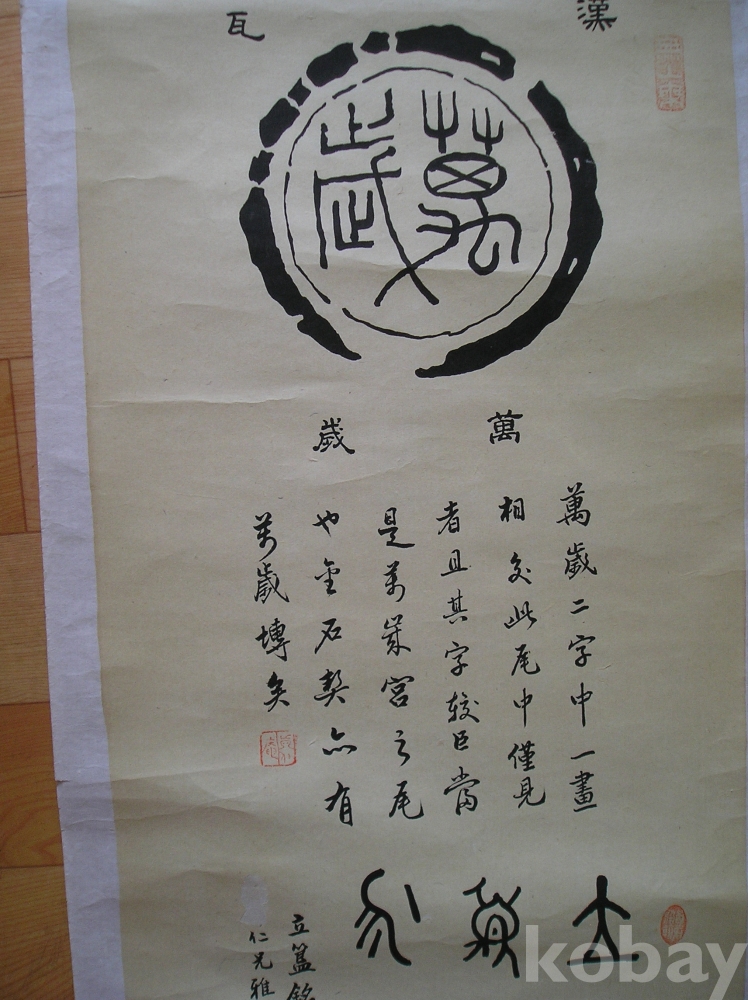 漢瓦
萬歲
萬歲
萬歲二字中一畫
相交此尾中僅見
者且其字較巨當
是萬歲宮之尾
也金石契亦有
萬歲塼矣
立簋銘
仁兄雅
kobay